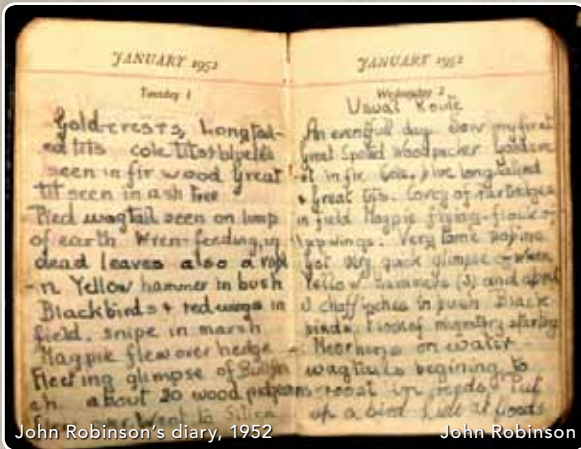 JANUARY 1952
Tuesday 1
Goldcrests, Longtail-
ed tits cole tits & bluetits
seen in fir wood Great
tit seen in ash tree
Pied wagtail seen on lump
of earth Wren feeding in
dead leaves also a rob
-n Yellow hammer in bush
Blackbirds & redwings in
field. snipe in marsh
Magpie flew over hedge
fleeting glimpse of Bullfin
ch about 20 wood pidgeons
Went to
JANUARY 1952
Wednesday 2
Usual Route
An eventful day. Saw my first
Great Spotted Woodpecker Goldcre
st in fir Cole, blue longtailed
& Great tits. Covey of Partridges
in field Magpie flying - flock of
lapwings. Very tame
Got very quick glimpse of
Yellow hammers (3) and about
chaffinches in bush Black
birds, flock of migratory starlings
Moorhens on water -
wagtails begining to
roost in reeds Put
up a bird
John Robinson's diary, 1952
John Robinson